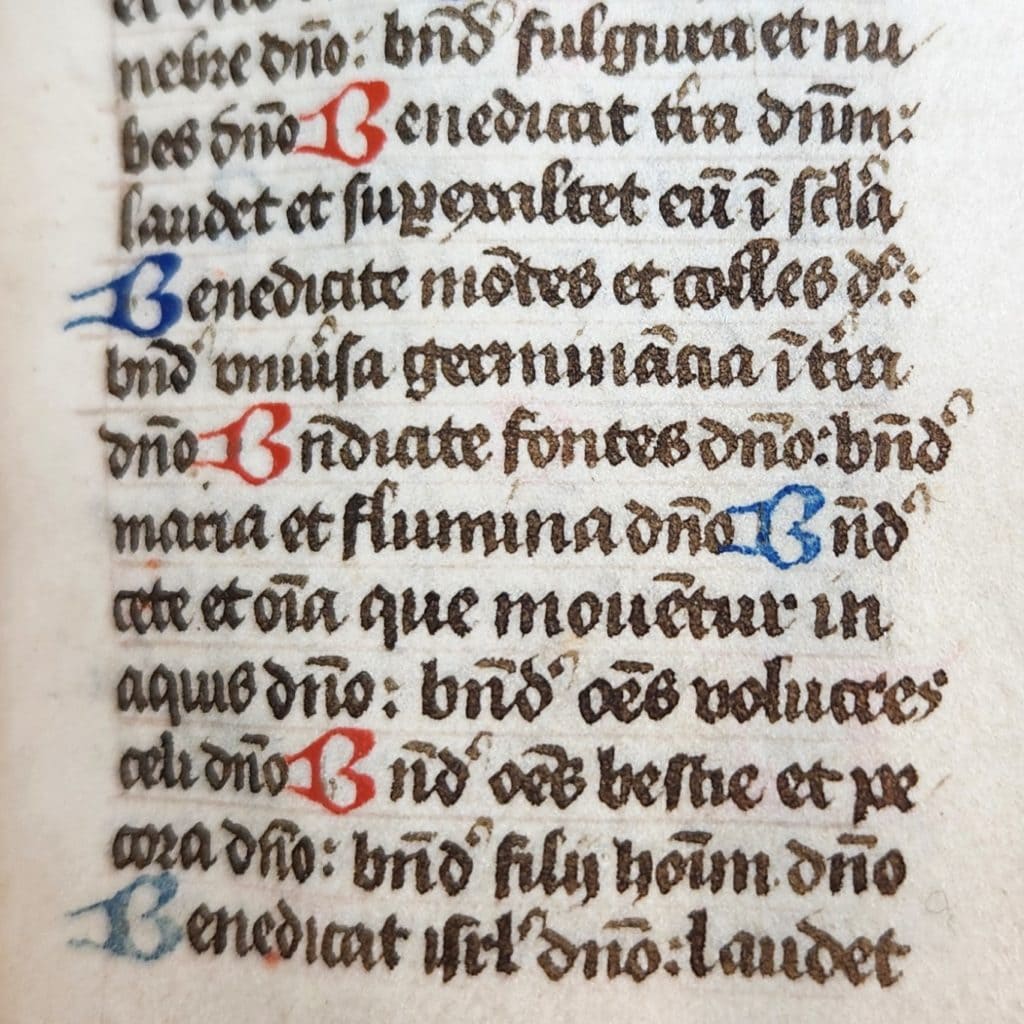 nebre dn̄o: bn̄d fulgura et nu
bes dn̄o Benedicat t͛ra dn̄m:
laudet et superexaltet eū ī sc̄la
Benedicite mōtes et colles d̄s:
bn̄d vniu͛sa germinācia ī t͛ra
dn̄o Bn̄dicite fontes dn̄o: bn̄d
maria et flumina dn̄o Bn̄d
cete et oīa que mouētur in
aquis dn̄o: bn̄d oēs volucres
celi dn̄o Bn̄d oēs bestie et pe
cora dn̄o: bn̄d filij hoīm dn̄o
Benedicat isrl dn̄o: laudet